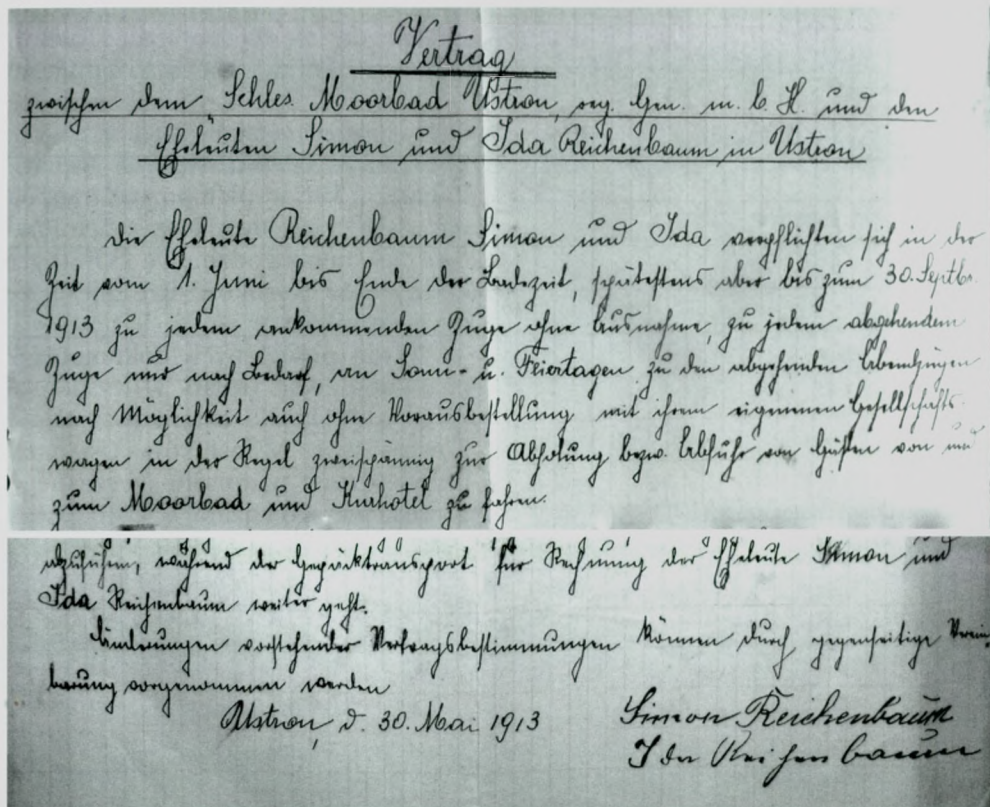 Vertrag
zwischen dem Schles. Moorbad Ustron, reg. Gen. m. b. H. und den
Eheleuten Simon und Ida Reichenbaum in Ustron
Die Eheleute Reichenbaum Simon und Ida verpflichten sich in der
Zeit vom 1. Juni bis Ende der Badezeit, spätestens aber bis zum 30. Septbr.
1913 zu jedem ankommenden Zuge ohne Ausnahme, zu jedem abgehendem
Zuge nur nach Bedarf, an Sonn- u. Feiertagen zu den abgehenden Abendzügen
nach Möglichkeit auch ohne Vorausbestellung mit ihrem eigenen Gesellschafts-
wagen in der Regel zweispännig zur Abholung bezw. Abfuhr von Gästen von und
zum Moorbad und Kurhotel zu fahren.
abzuführen, während der Gepäcktransport für Rechnung der Eheleute Simon und
Ida Reichenbaum weiter geht.
Änderungen vorstehender Vertragsbestimmungen können durch gegenseitige Verein-
barung vorgenommen werden
Ustron, d. 30. Mai 1913
Simon Reichenbaum
Ida Reichenbaum